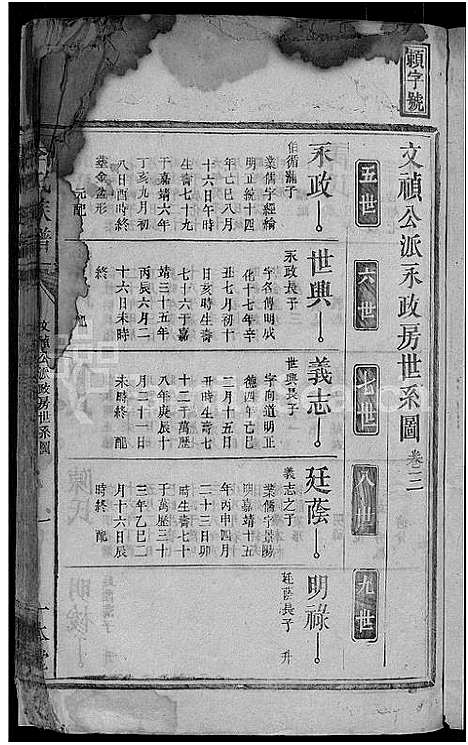 穎字號
文禎公派永政房世系圖 卷三
五世
六世
七世
八世
九世
永政
伯循滿子
業儒字經綸
明正統十四
年己巳八月
十六日午時
生壽七十九
于嘉靖六年
丁亥九月初
八日酉時終
葬金盆形
元配
世興
永政長子
字名傳明成
化十七年辛
丑七月初十
日亥時生壽
七十六于嘉
靖三十五年
丙辰六月二
十六日未時
終
義志
世興長子
字尚道明正
德四年己巳
二月十五日
丑時生壽七
十二于萬歷
八年庚辰十
月三十一日
未時終 配
廷蔭
義志之子
業儒字景陽
明嘉靖十五
年丙申四月
二十三日卯
時生壽七十
于萬歷三十
三年乙巳二
月十六日辰
時終 配
明祿
廷蔭長子 升
氏族譜
文禎公派政房世系圖
一
一本堂